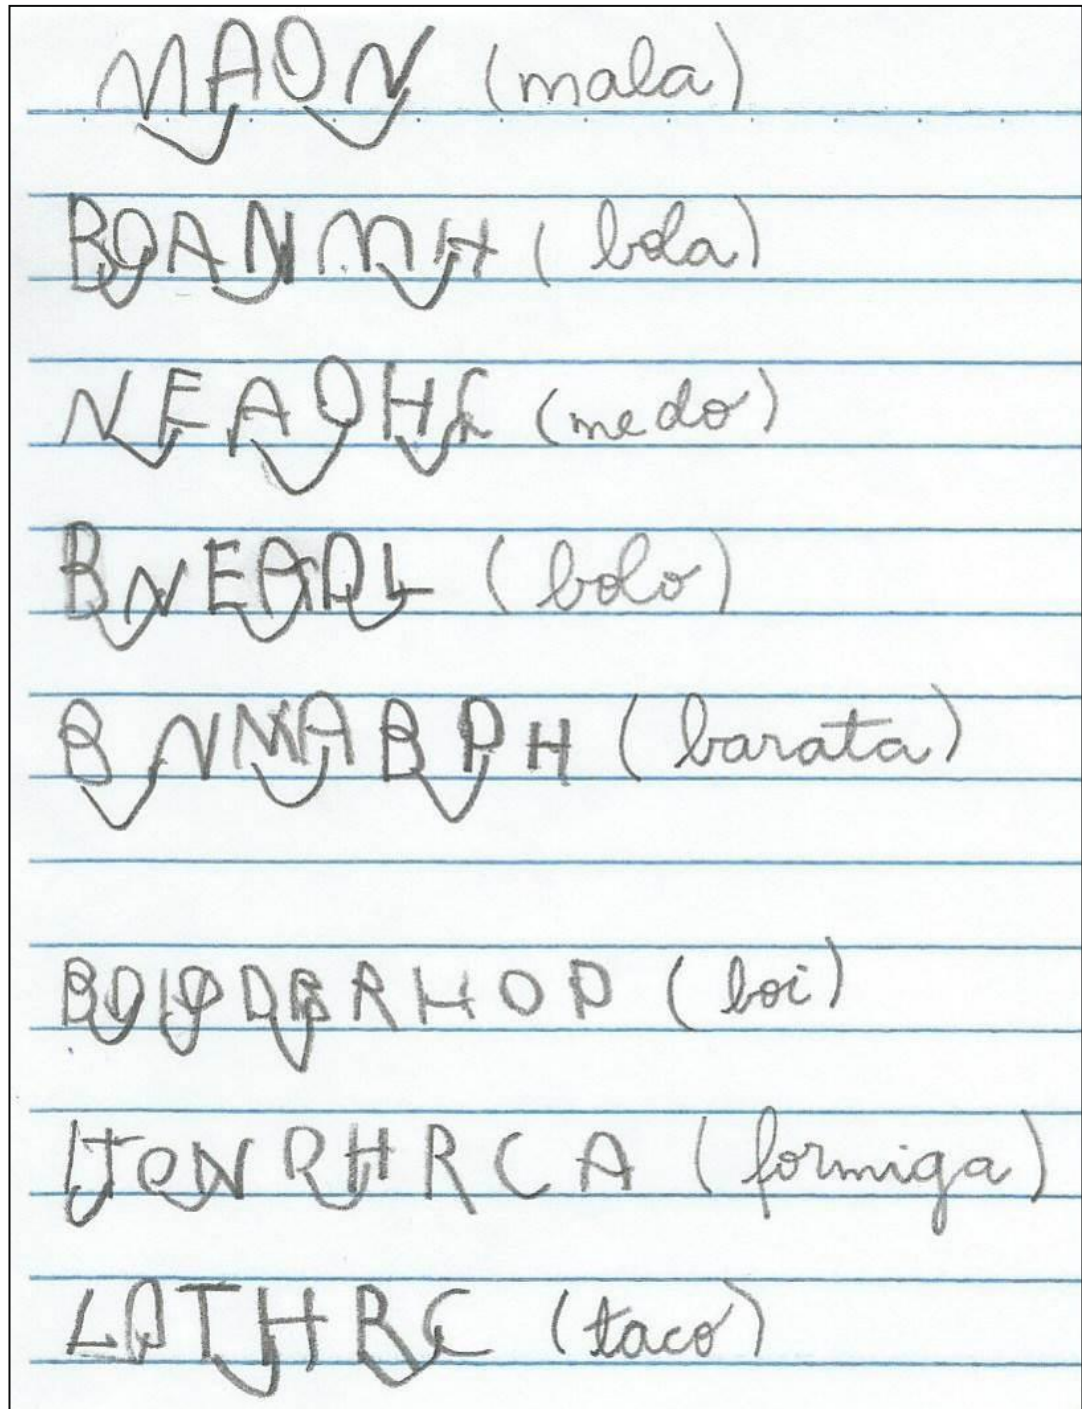 MAON (mala)
BOANMH (bola)
NEAOHL (medo)
BNEAOL (bolo)
BNMABPH (barata)
BOIODBRHOP (boi)
LTONRHRCA (formiga)
LATHRC (taco)